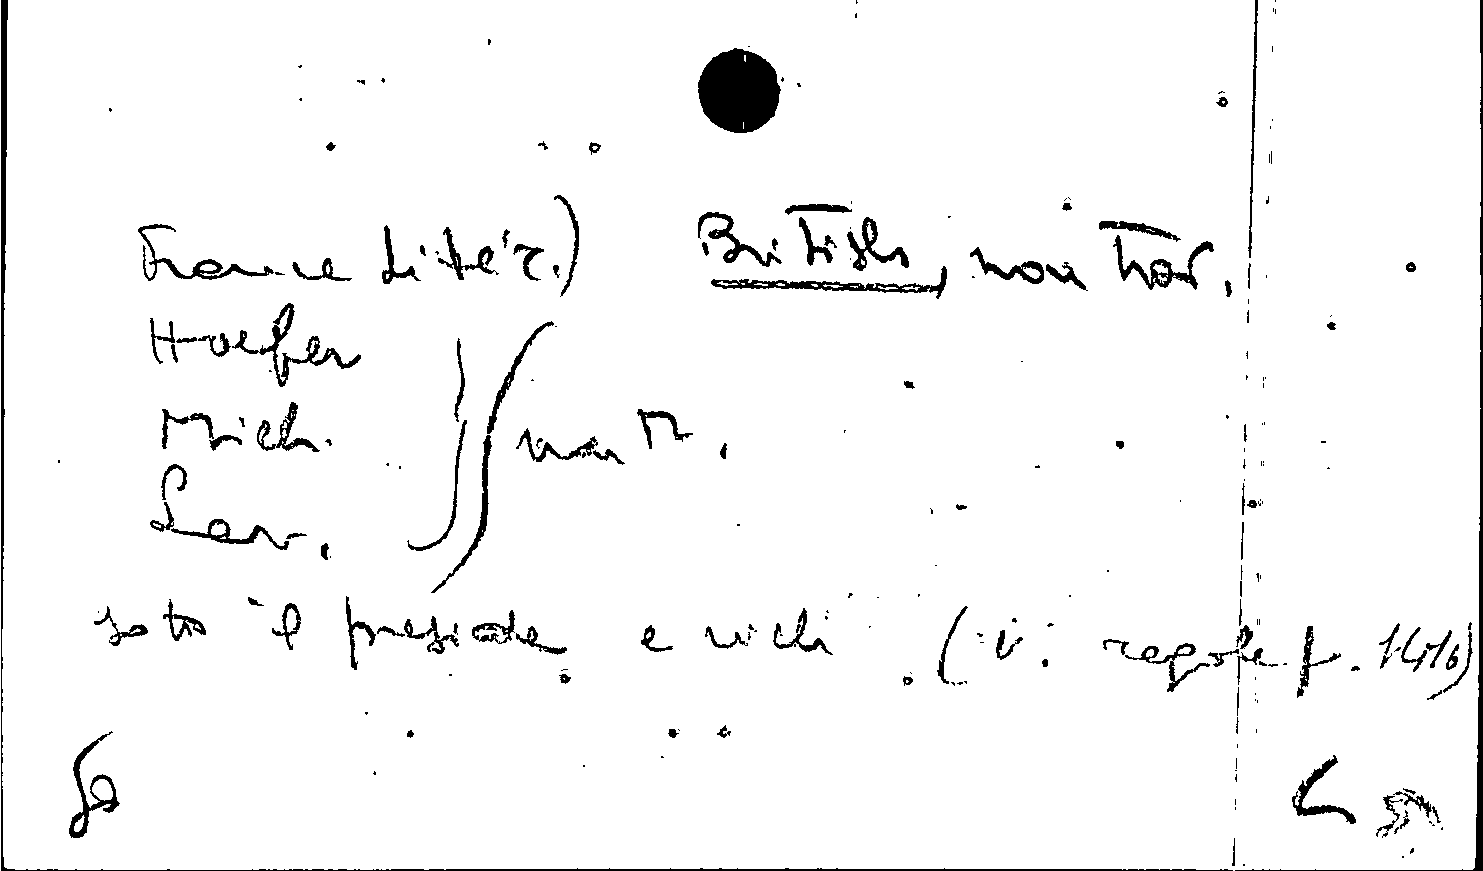 France littér.) British, non trov.
Hoefer
Mich. non M.
Lar.
sotto il preside e vichi (v. regole p.